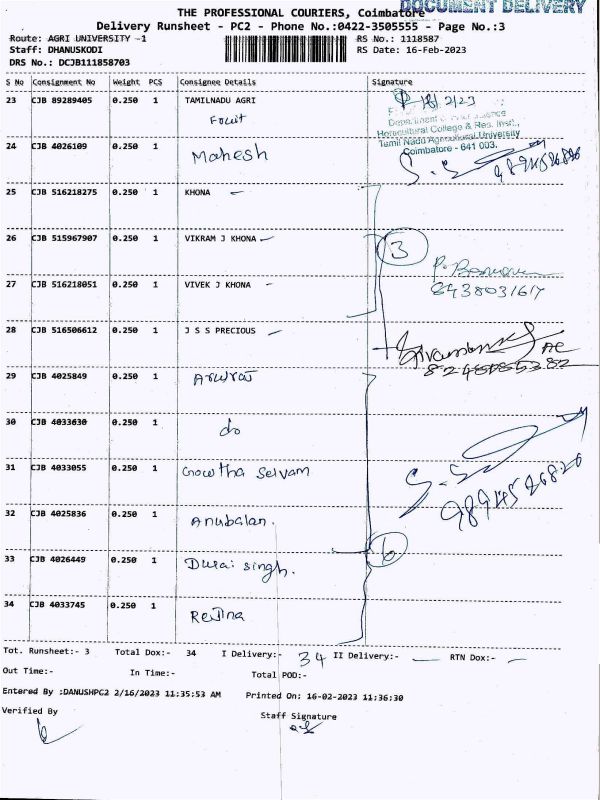 DOCUMENT DELIVERY
THE PROFESSIONAL COURIERS, Coimbatore
Delivery Runsheet - PC2 - Phone No.:0422-3505555 - Page No.:3
Route: AGRI UNIVERSITY -1
RS No.: 1118587
Staff: DHANUSKODI
RS Date: 16-Feb-2023
DRS No.: DCJB111858703
S No Consignment No Weight PCS Consignee Details Signature
23 CJB 89289405 0.250 1 TAMILNADU AGRI
Horticultural College & Res. Inst.,
Tamil Nadu Agricultural University
Coimbatore - 641 003.
24 CJB 4026109 0.250 1 Mahesh
25 CJB 516218275 0.250 1 KHONA
26 CJB 515967907 0.250 1 VIKRAM J KHONA
3
27 CJB 516218051 0.250 1 VIVEK J KHONA
8438031617
28 CJB 516506612 0.250 1 J S S PRECIOUS
29 CJB 4025849 0.250 1
30 CJB 4033630 0.250 1 do
31 CJB 4033055 0.250 1 Gowtha Selvam
32 CJB 4025836 0.250 1 Anubalan.
33 CJB 4026449 0.250 1 Durai singh.
6
34 CJB 4033745 0.250 1 Regina
Tot. Runsheet:- 3 Total Dox:- 34 I Delivery:- 34 II Delivery:- — RTN Dox:- —
Out Time:- In Time:- Total POD:-
Entered By :DANUSHPC2 2/16/2023 11:35:53 AM Printed On: 16-02-2023 11:36:30
Verified By
Staff Signature